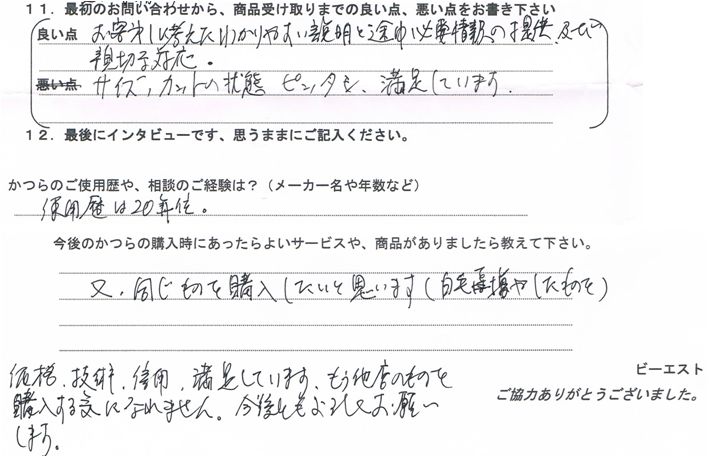 11. 最初のお問い合わせから、商品受け取りまでの良い点、悪い点をお書き下さい
良い点 お客さんに考えたわかりやすい説明と途中必要情報の提供、及び
親切な対応。
悪い点 サイズ、カットの状態 ピッタシ、満足しています。
12. 最後にインタビューです、思うままにご記入ください。
かつらのご使用歴や、相談のご経験は?(メーカー名や年数など)
使用歴は20年位。
今後のかつらの購入時にあったらよいサービスや、商品がありましたら教えて下さい。
又、同じものを購入したいと思います(白毛増やしたものを)
価格、技術、信用、満足しています、もう他店のものを
購入する気になれません。今後ともよろしくお願い
します。
ビーエスト
ご協力ありがとうございました。